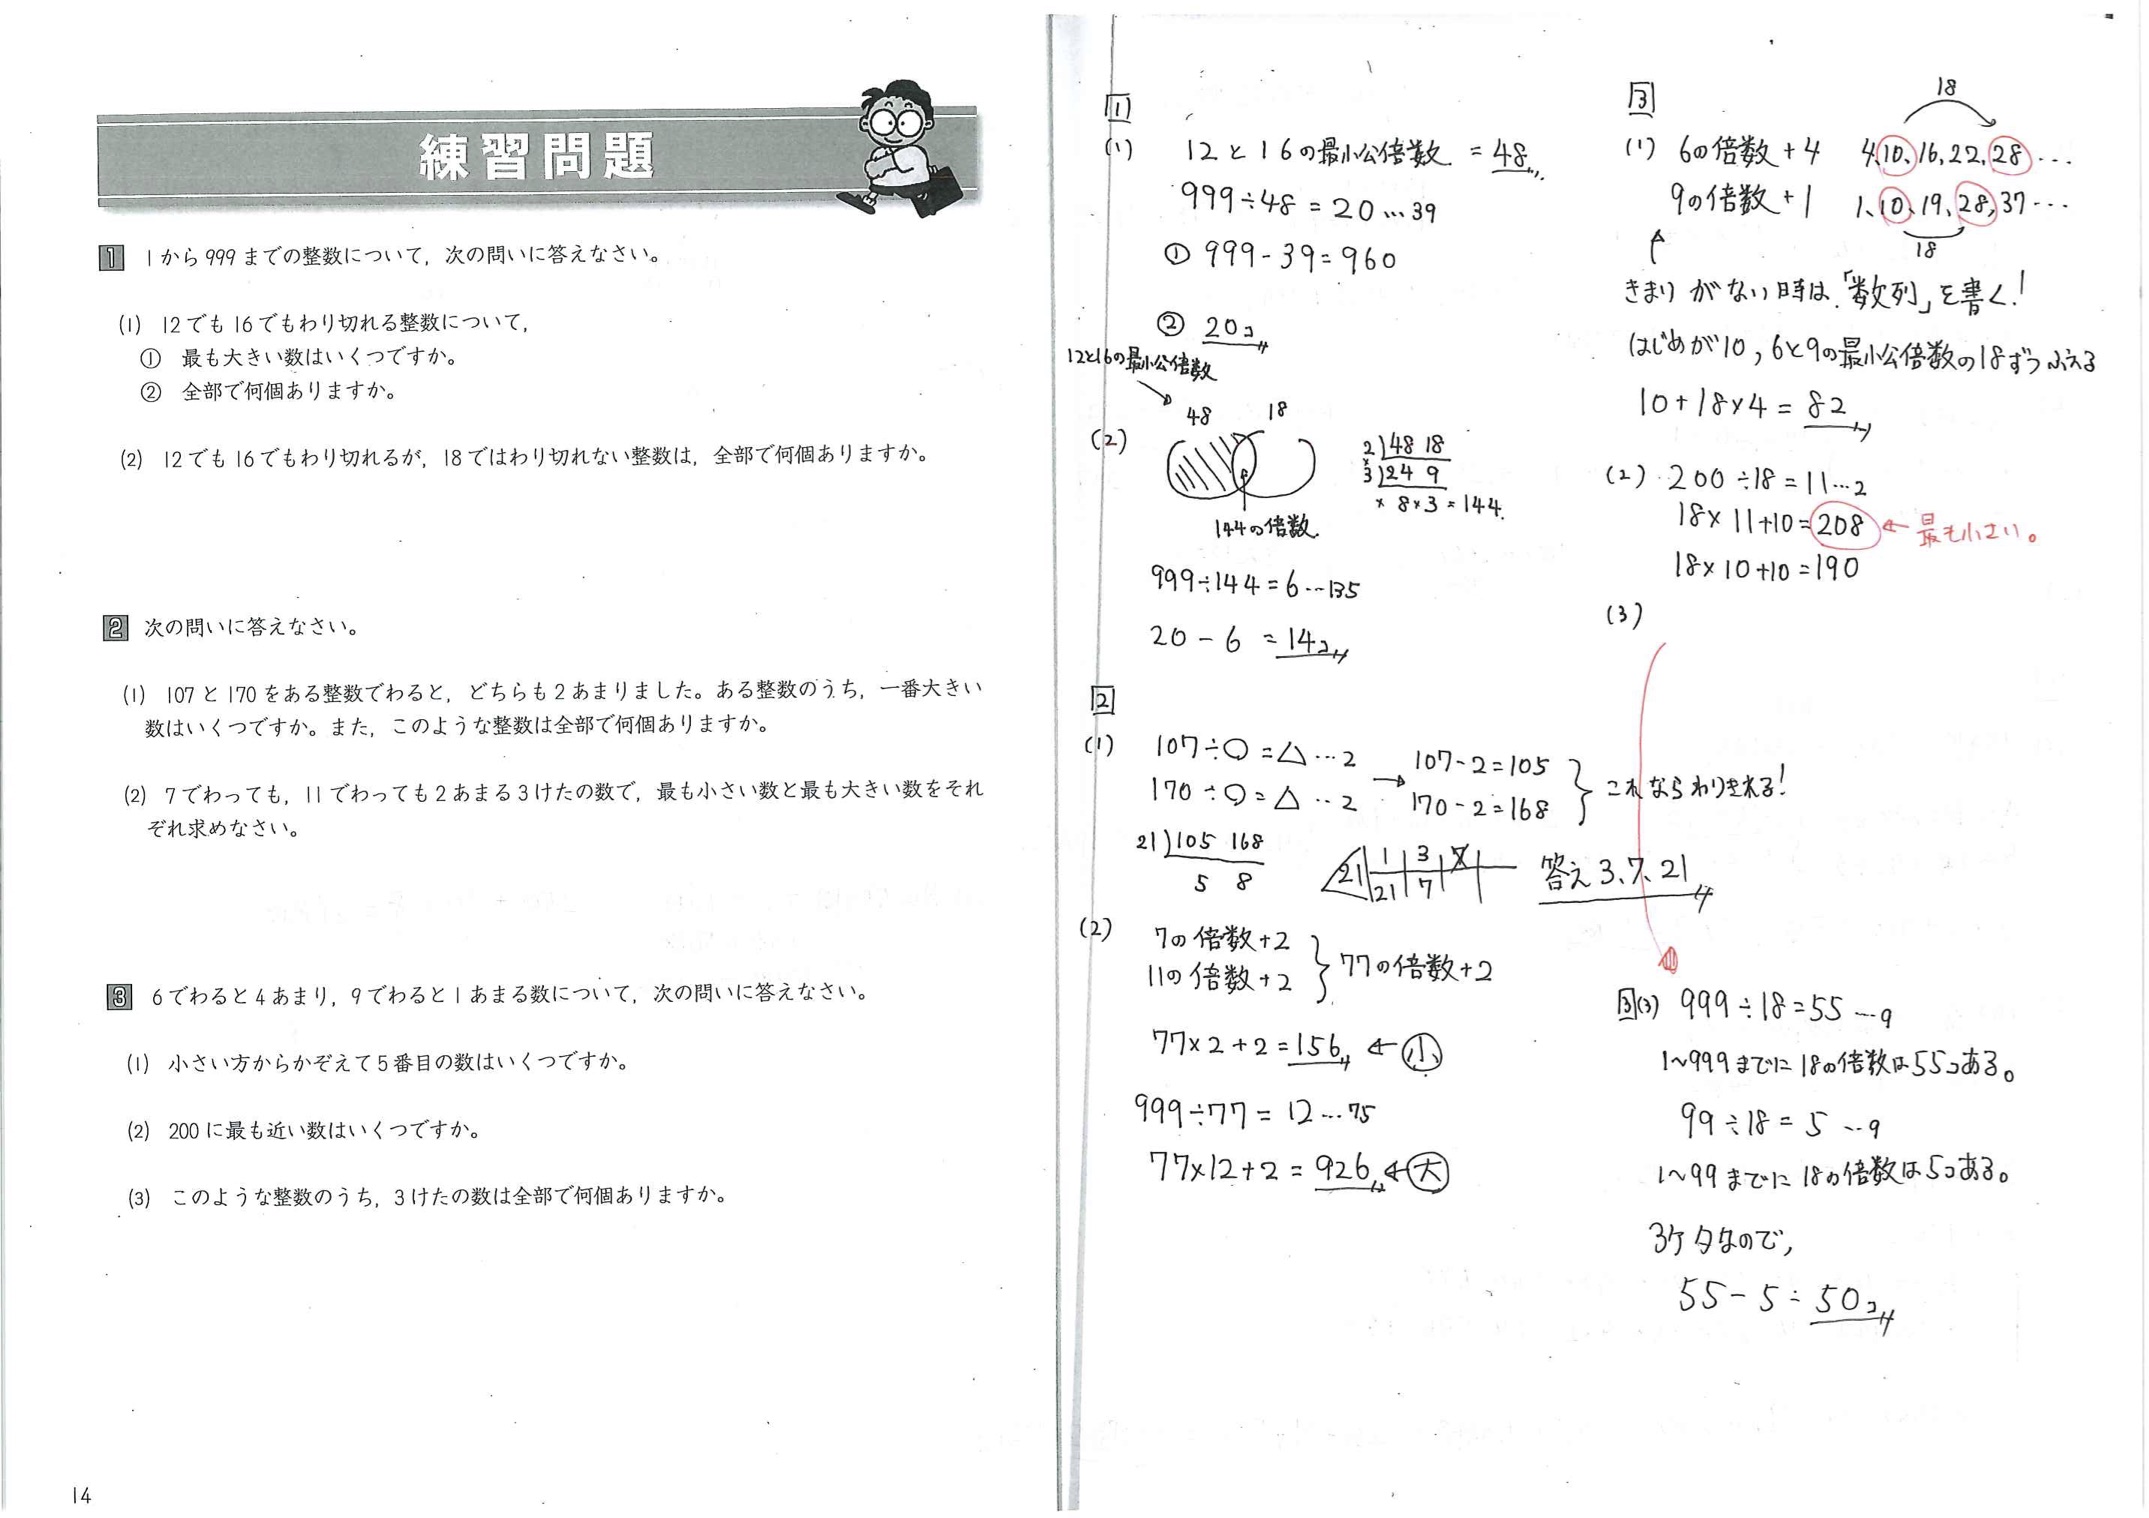 練習問題
1 1から999までの整数について，次の問いに答えなさい。
(1) 12でも16でもわり切れる整数について，
① 最も大きい数はいくつですか。
② 全部で何個ありますか。
(2) 12でも16でもわり切れるが，18ではわり切れない整数は，全部で何個ありますか。
2 次の問いに答えなさい。
(1) 107と170をある整数でわると，どちらも2あまりました。ある整数のうち，一番大きい
数はいくつですか。また，このような整数は全部で何個ありますか。
(2) 7でわっても，11でわっても2あまる3けたの数で，最も小さい数と最も大きい数をそれ
ぞれ求めなさい。
3 6でわると4あまり，9でわると1あまる数について，次の問いに答えなさい。
(1) 小さい方からかぞえて5番目の数はいくつですか。
(2) 200に最も近い数はいくつですか。
(3) このような整数のうち，3けたの数は全部で何個ありますか。
14
1
(1) 12と16の最小公倍数 = 48
999÷48=20…39
① 999-39=960
② 20コ
12と16の最小公倍数
48 18
(2)
2)48 18
×3)24 9
× 8×3=144
144の倍数
999÷144=6…135
20-6=14コ
2
(1) 107÷○=△…2 → 107-2=105
170÷○=△…2 170-2=168
これならわりきれる！
21)105 168
5 8
21 1 3 7
21 7
答え 3、7、21
(2) 7の倍数+2
11の倍数+2
77の倍数+2
77×2+2=156 ← 小
999÷77=12…75
77×12+2=926 ← 大
3
18
(1) 6の倍数+4 4、10、16、22、28…
9の倍数+1 1、10、19、28、37…
18
きまりがない時は、「数列」を書く！
はじめが10，6と9の最小公倍数の18ずつふえる
10+18×4=82
(2) 200÷18=11…2
18×11+10=208 ← 最も小さい。
18×10+10=190
(3)
3(3) 999÷18=55…9
1〜999までに18の倍数は55コある。
99÷18=5…9
1〜99までに18の倍数は5コある。
3ケタなので，
55-5=50コ